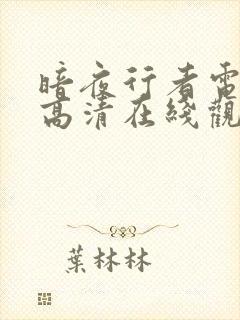 暗夜行者電
高清在綫觀
葉林林